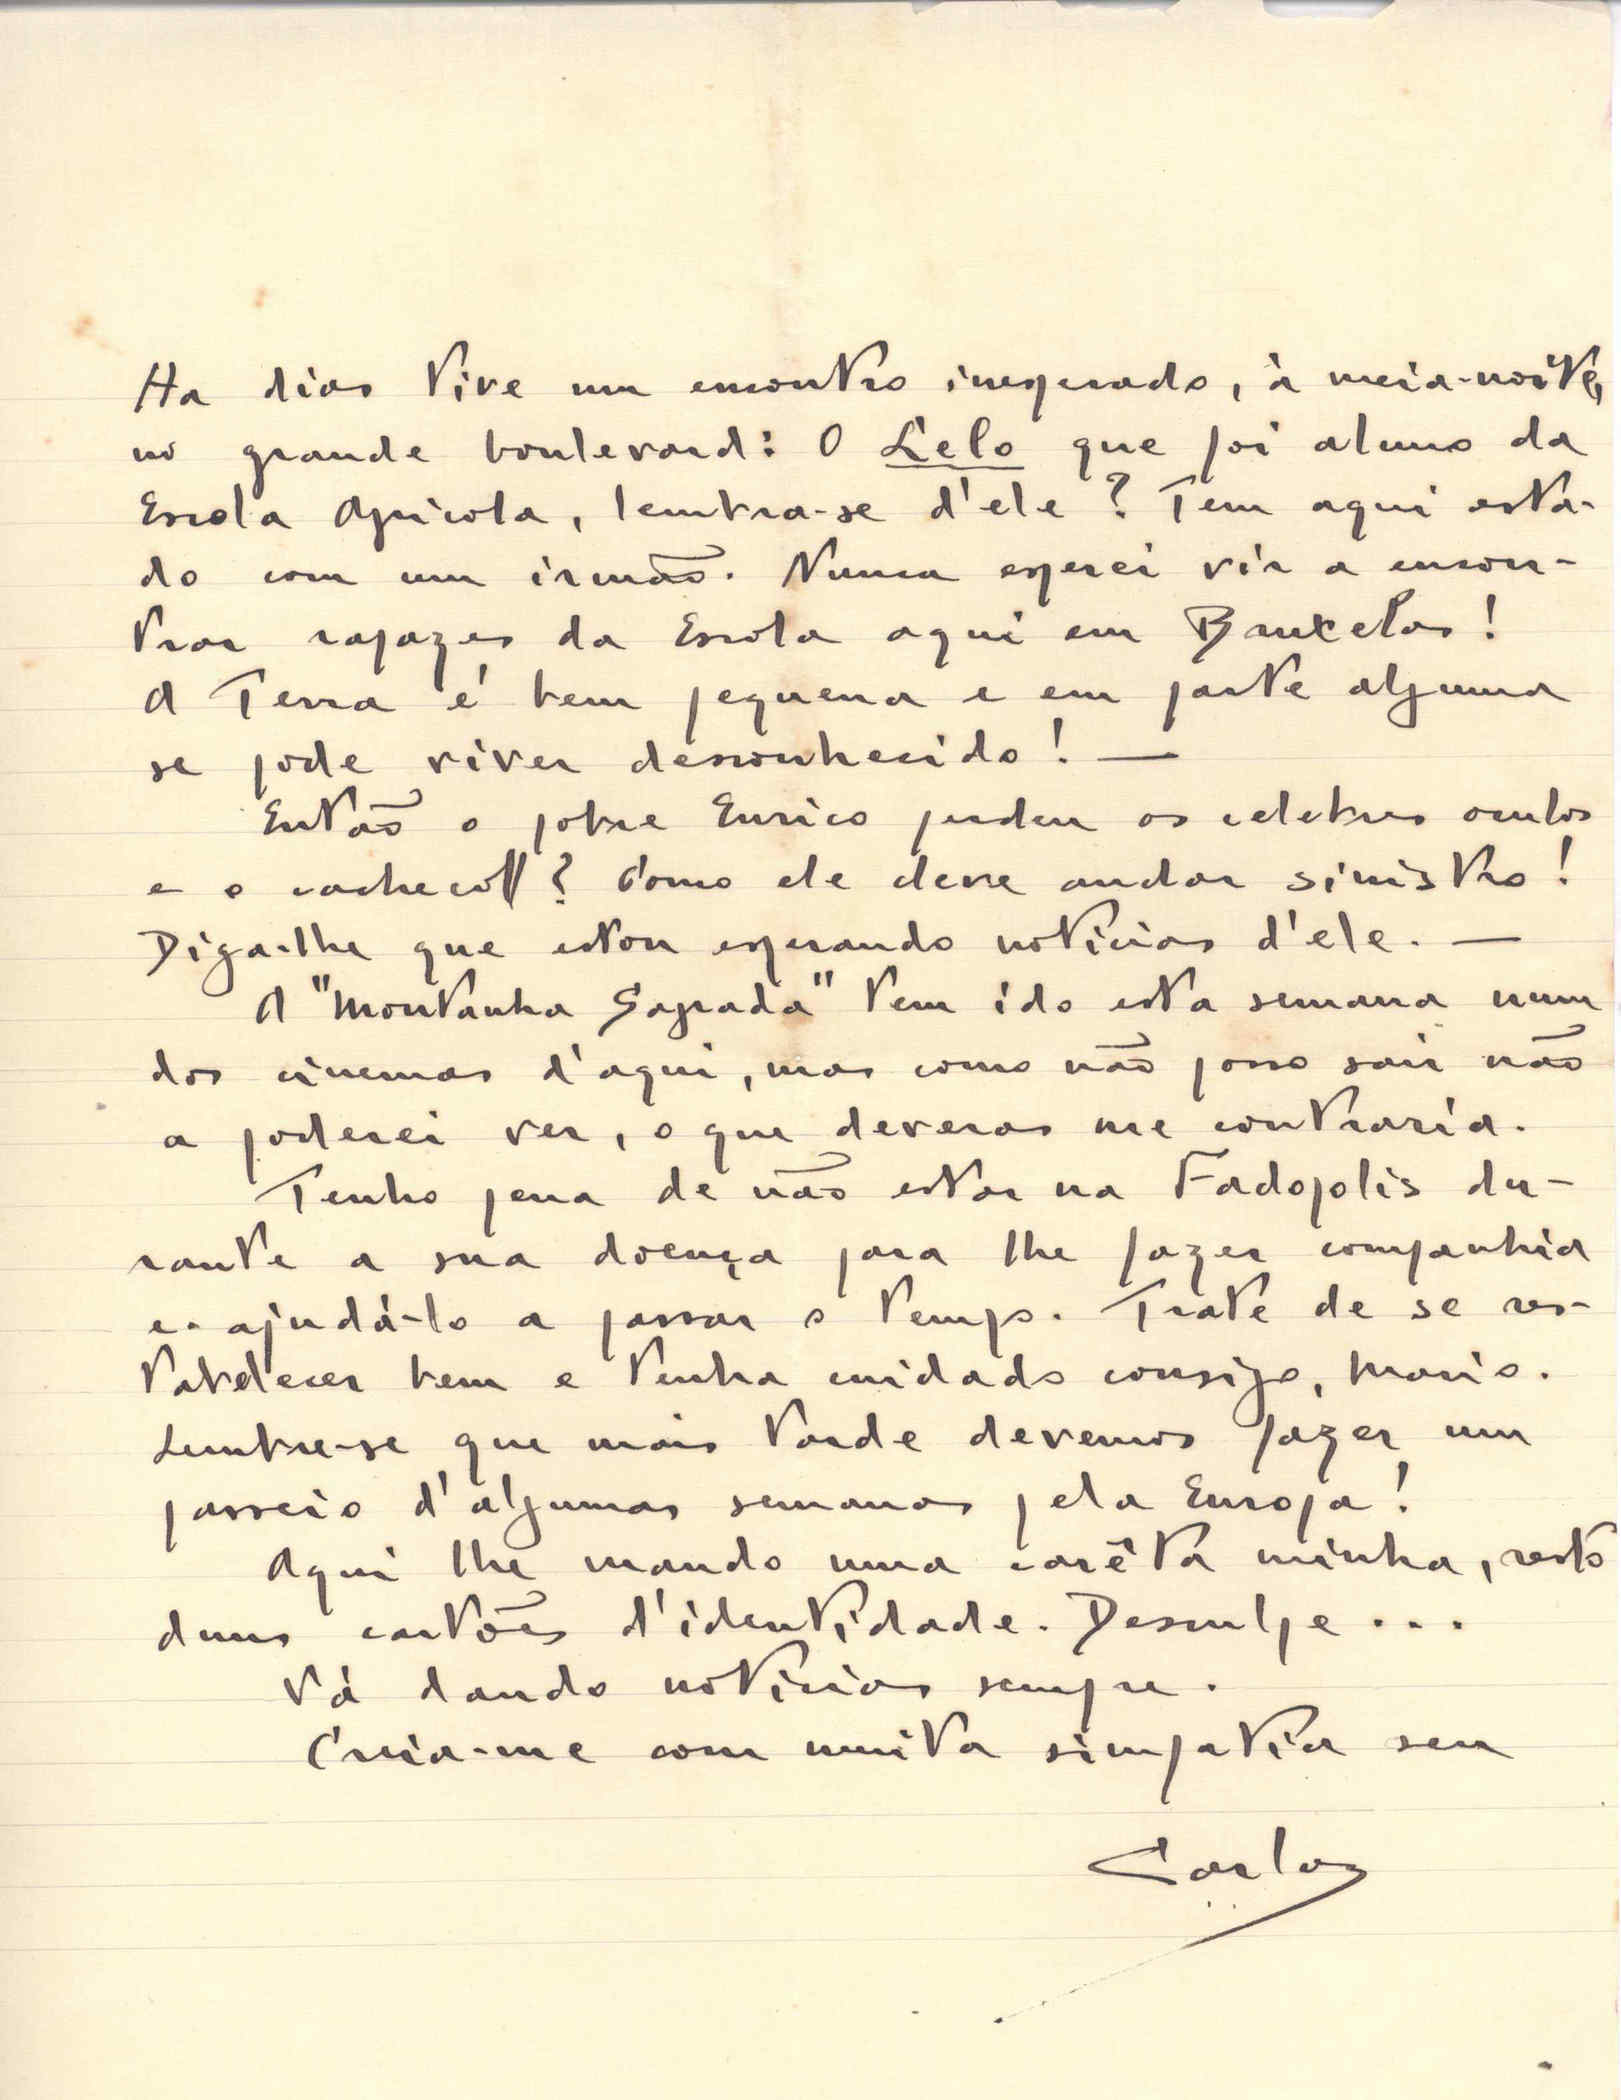 Ha dias tive um encontro inesperado, à meia-noite,
no grande boulevard: O Lelo que foi aluno da
Escola Agricola, lembra-se d'ele? Tem aqui esta-
do com um irmão. Nunca esperei vir a encon-
trar rapazes da Escola aqui em Bruxelas!
A Terra é bem pequena e em parte alguma
se pode viver desconhecido! —
Então o pobre Eurico perdeu os celebres oculos
e o cachecoll? Como ele deve andar sinistro!
Diga-lhe que estou esperando noticias d'ele. —
A "Montanha Sagrada" tem ido esta semana num
dos cinemas d'aqui, mas como não posso sair não
a poderei ver, o que deveras me contraría.
Tenho pena de não estar na Fadopolis du-
rante a sua doença para lhe fazer companhia
e ajudá-lo a passar o tempo. Trate de se res-
tabelecer bem e tenha cuidado consigo, Mario.
Lembre-se que mais tarde devemos fazer um
passeio d'algumas semanas pela Europa!
Aqui lhe mando uma carêta minha, resto
duns cartões d'identidade. Desculpe...
Vá dando noticias sempre.
Creia-me com muita simpatia seu
Carlos